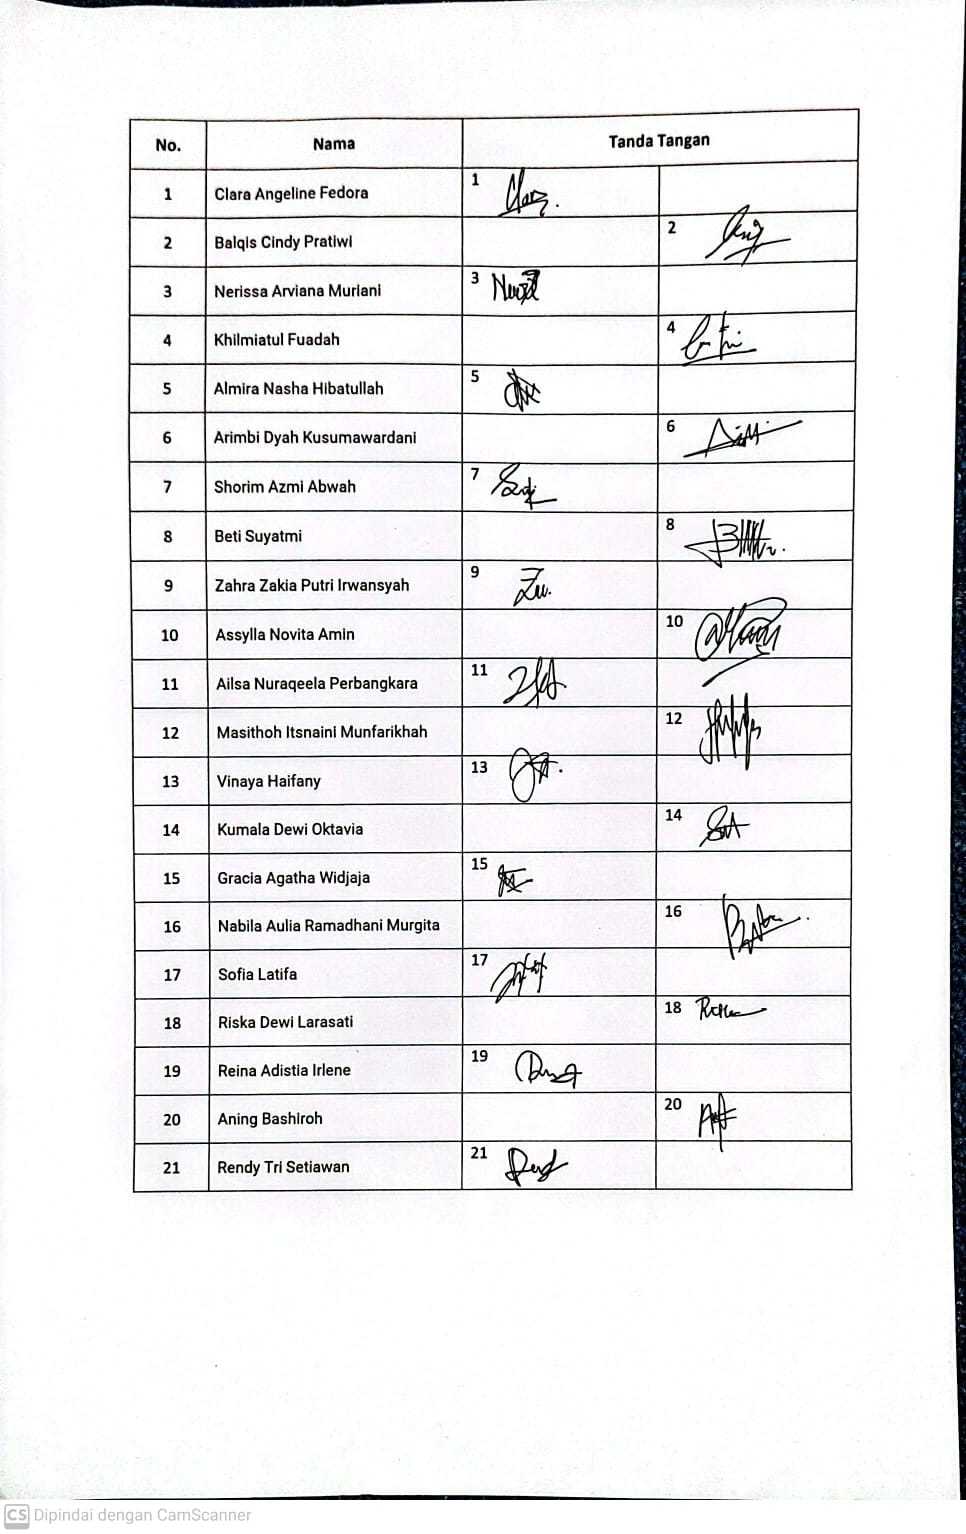 No. Nama Tanda Tangan
1 Clara Angeline Fedora 1
2 Balqis Cindy Pratiwi 2
3 Nerissa Arviana Muriani 3
4 Khilmiatul Fuadah 4
5 Almira Nasha Hibatullah 5
6 Arimbi Dyah Kusumawardani 6
7 Shorim Azmi Abwah 7
8 Beti Suyatmi 8
9 Zahra Zakia Putri Irwansyah 9
10 Assylla Novita Amin 10
11 Ailsa Nuraqeela Perbangkara 11
12 Masithoh Itsnaini Munfarikhah 12
13 Vinaya Haifany 13
14 Kumala Dewi Oktavia 14
15 Gracia Agatha Widjaja 15
16 Nabila Aulia Ramadhani Murgita 16
17 Sofia Latifa 17
18 Riska Dewi Larasati 18
19 Reina Adistia Irlene 19
20 Aning Bashiroh 20
21 Rendy Tri Setiawan 21
CS Dipindai dengan CamScanner